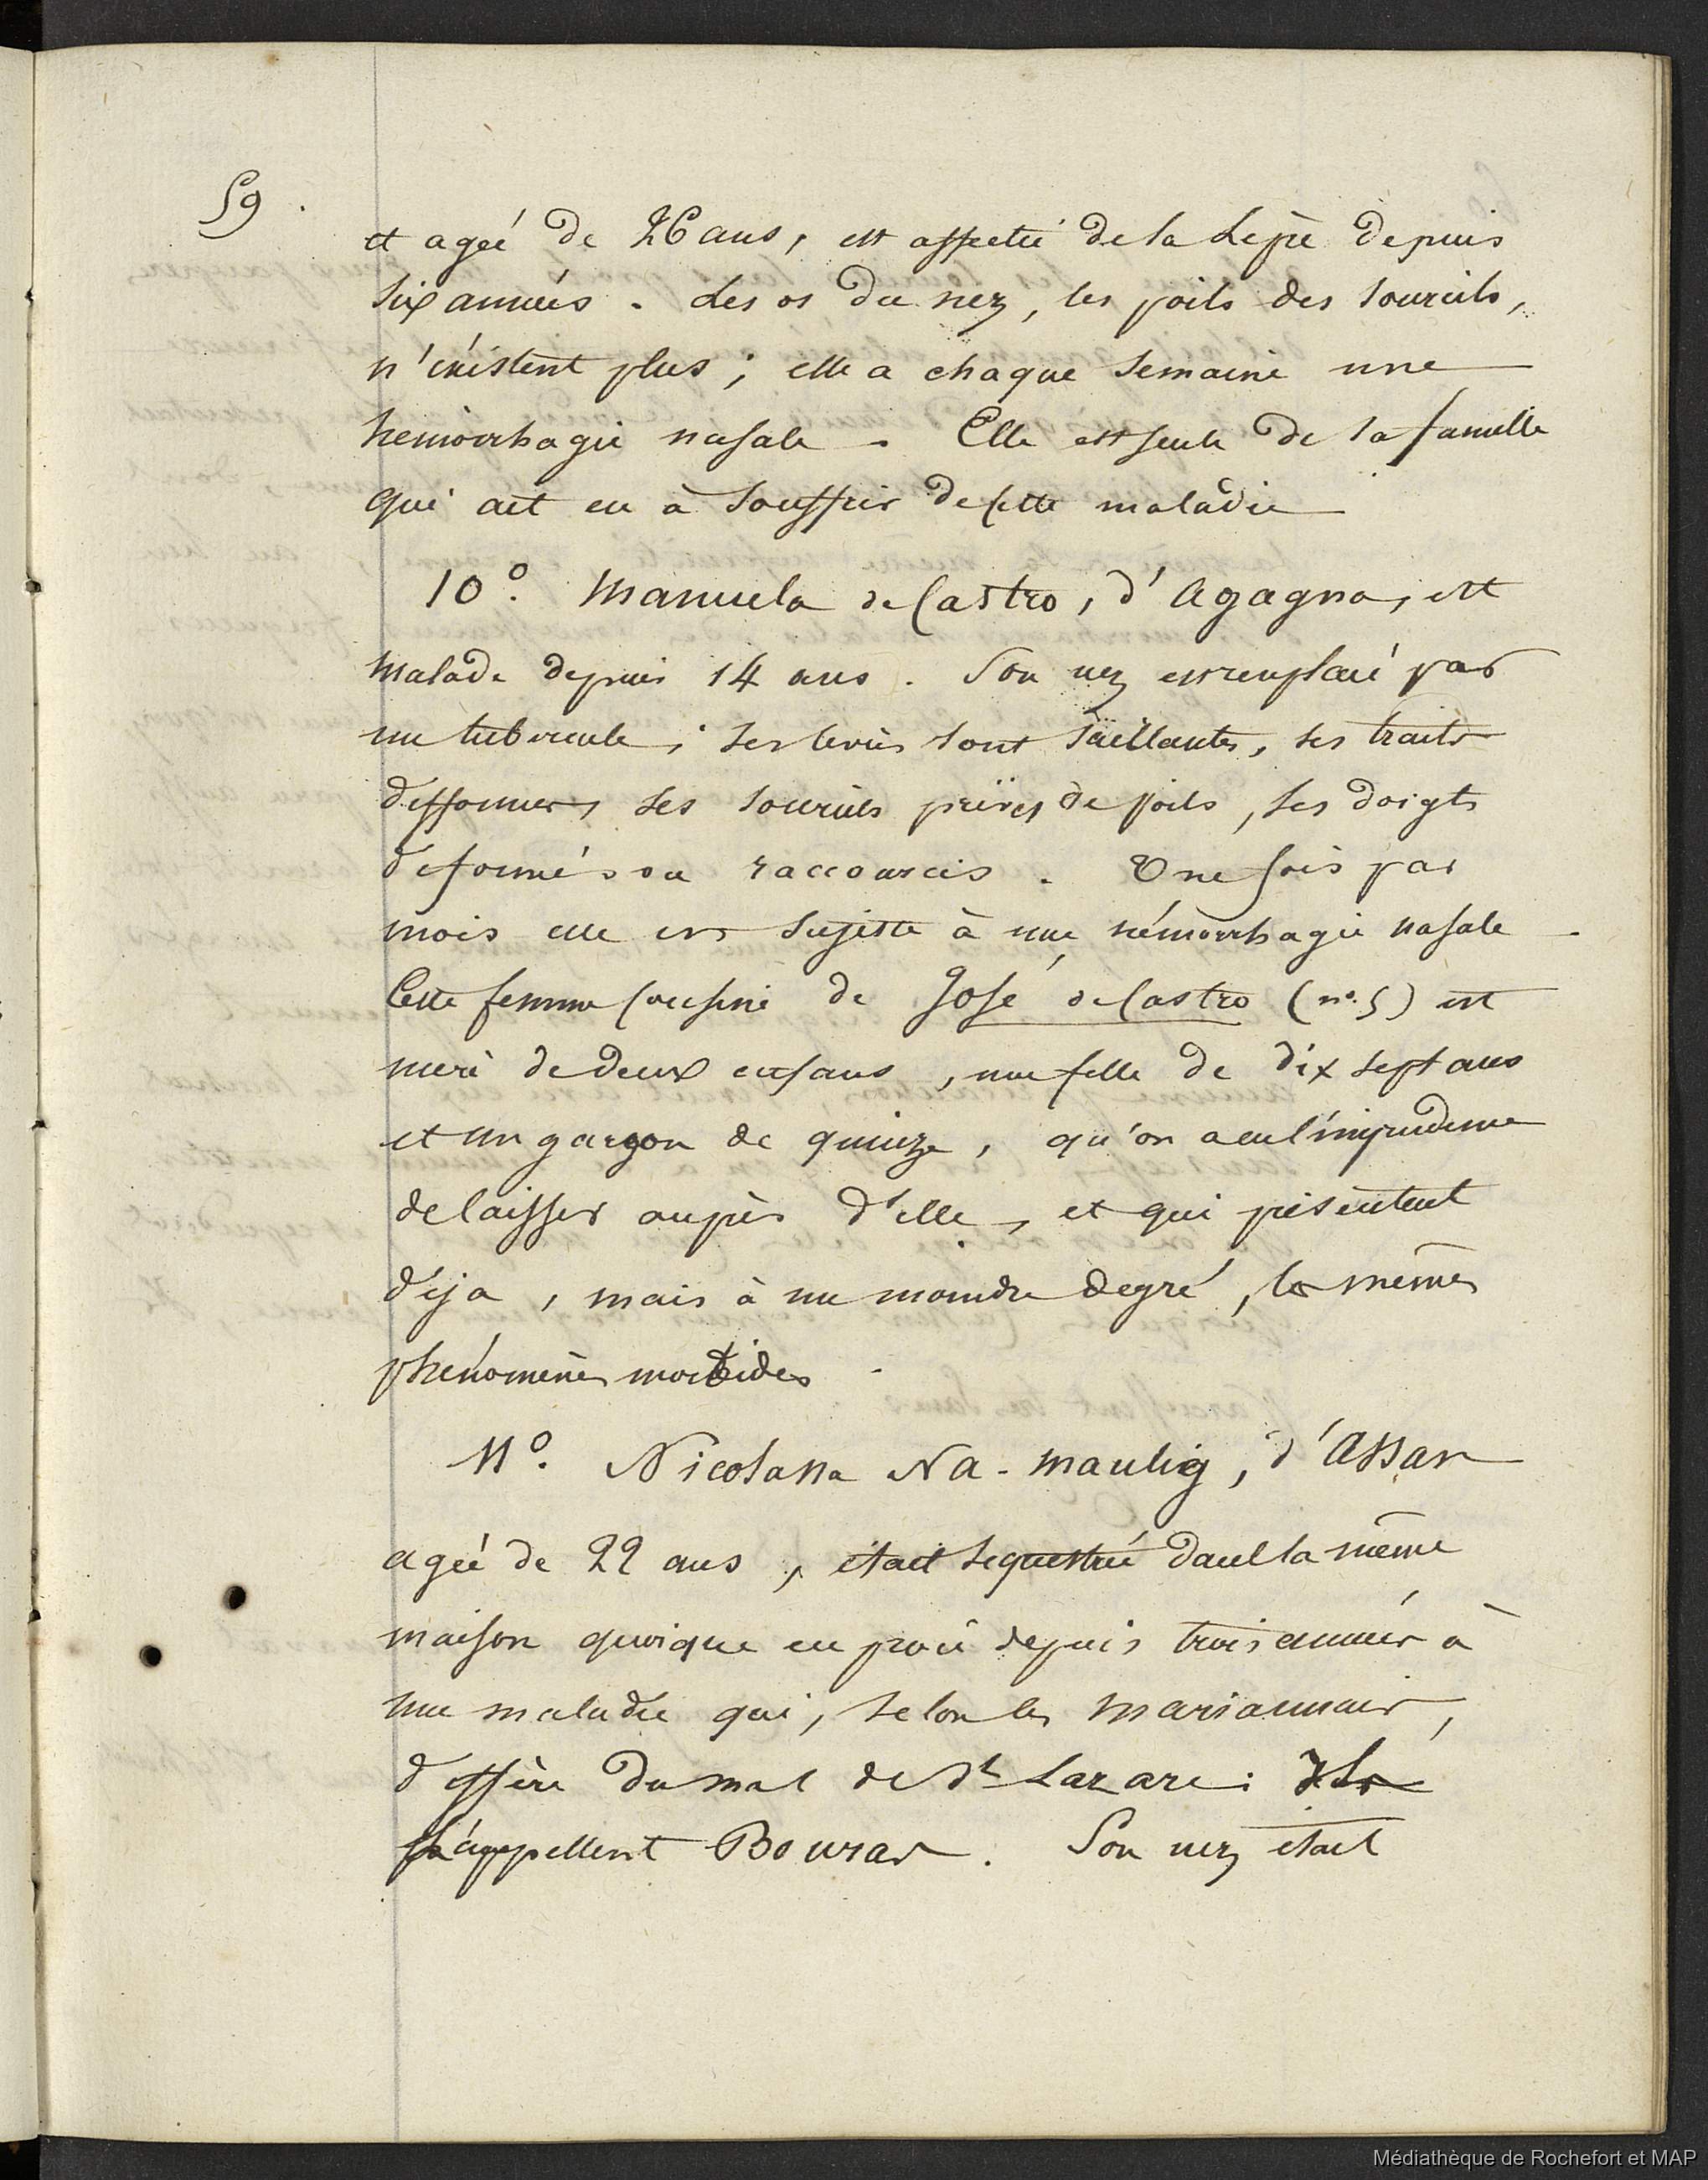 59.
et agée de 26 ans, est affectée de la Lèpre depuis
six années. Les os du nez, les poils des sourcils,
n'existent plus; elle a chaque semaine une
hémorrhagie nasale. Elle est seule de sa famille
qui ait eu à souffrir de cette maladie
10.° Manuela de Castro, d'Agagna, est
malade depuis 14 ans. Son nez est remplacé par
un tubercule; ses levres sont saillantes, ses traits
difformes, ses sourcils privés de poils, ses doigts
deformés ou raccourcis. Une fois par
mois elle est sujette à une hémorrhagie nasale.
Cette femme cousine de José de Castro (n°. 5) est
mere de deux enfans, une fille de dix sept ans
et un garçon de quinze, qu'on a eu l'imprudence
de laisser auprès d'elle, et qui présentent
déja, mais à un moindre degré, les mêmes
phénomènes morbides.
11.° Nicolassa Na-maulig, d'Assan
agée de 22 ans, était sequestrée dans la même
maison quoique en proie depuis trois années à
une maladie qui, selon les Mariannais,
differe du mal de St Lazare: Ils
l'appellent Bouras. Son nez était
Médiathèque de Rochefort et MAP